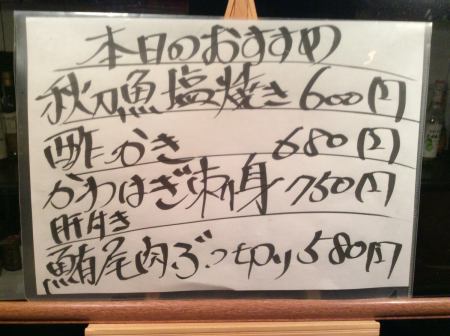 本日のおすすめ
秋刀魚塩焼き600円
酢かき 680円
かわはぎ刺身750円
肝付き
鮪尾肉ぶつ切り580円